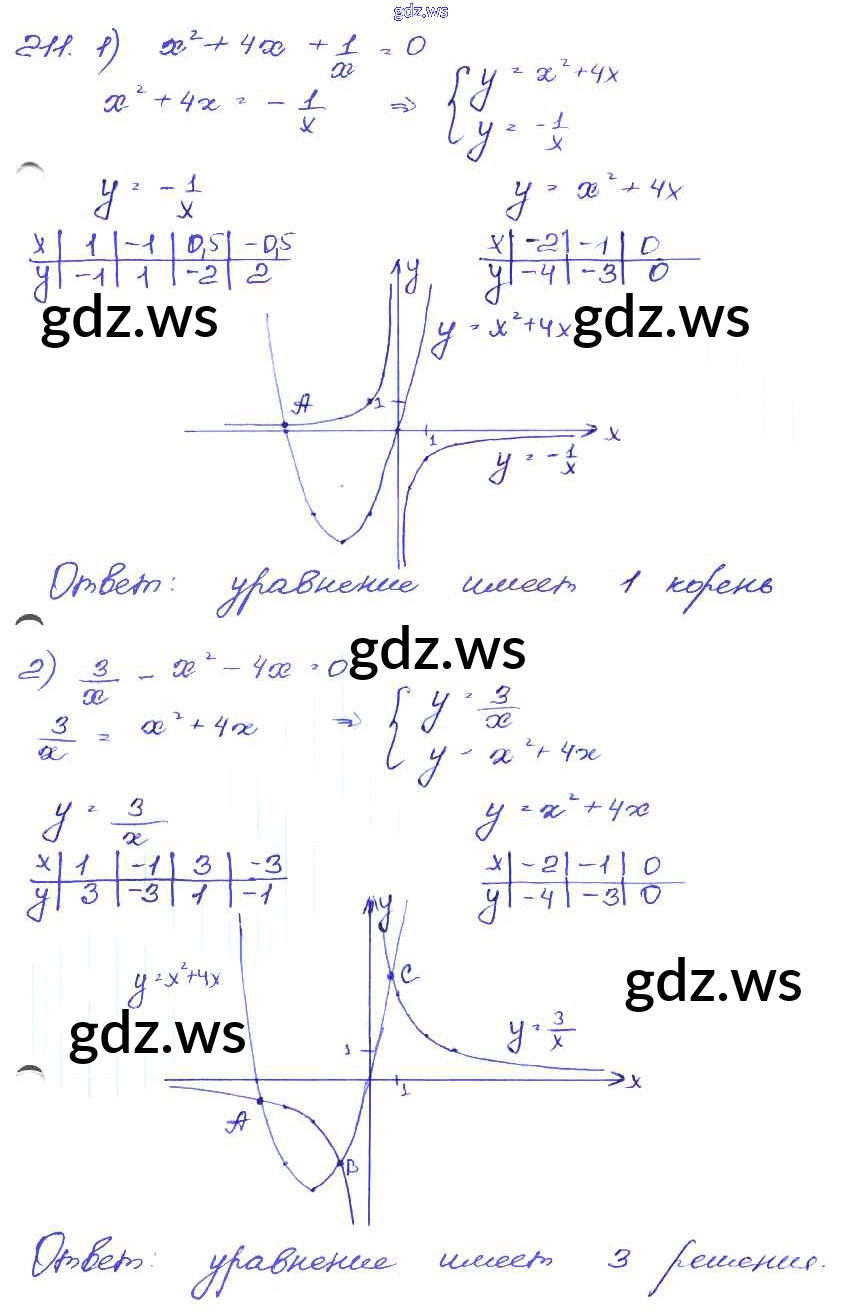 gdz.ws
211. 1) x² + 4x + 1/x = 0
x² + 4x = - 1/x ⇒ { y = x² + 4x
y = - 1/x
y = - 1/x y = x² + 4x
x | 1 | -1 | 0,5 | -0,5 x | -2 | -1 | 0
y | -1 | 1 | -2 | 2 y | -4 | -3 | 0
gdz.ws gdz.ws
y
y = x² + 4x
A 1
1 x
y = - 1/x
Ответ: уравнение имеет 1 корень
gdz.ws
2) 3/x - x² - 4x = 0
3/x = x² + 4x ⇒ { y = 3/x
y = x² + 4x
y = 3/x y = x² + 4x
x | 1 | -1 | 3 | -3 x | -2 | -1 | 0
y | 3 | -3 | 1 | -1 y | -4 | -3 | 0
y
y = x² + 4x C
gdz.ws gdz.ws
y = 3/x
1
1 x
A
B
Ответ: уравнение имеет 3 решения.